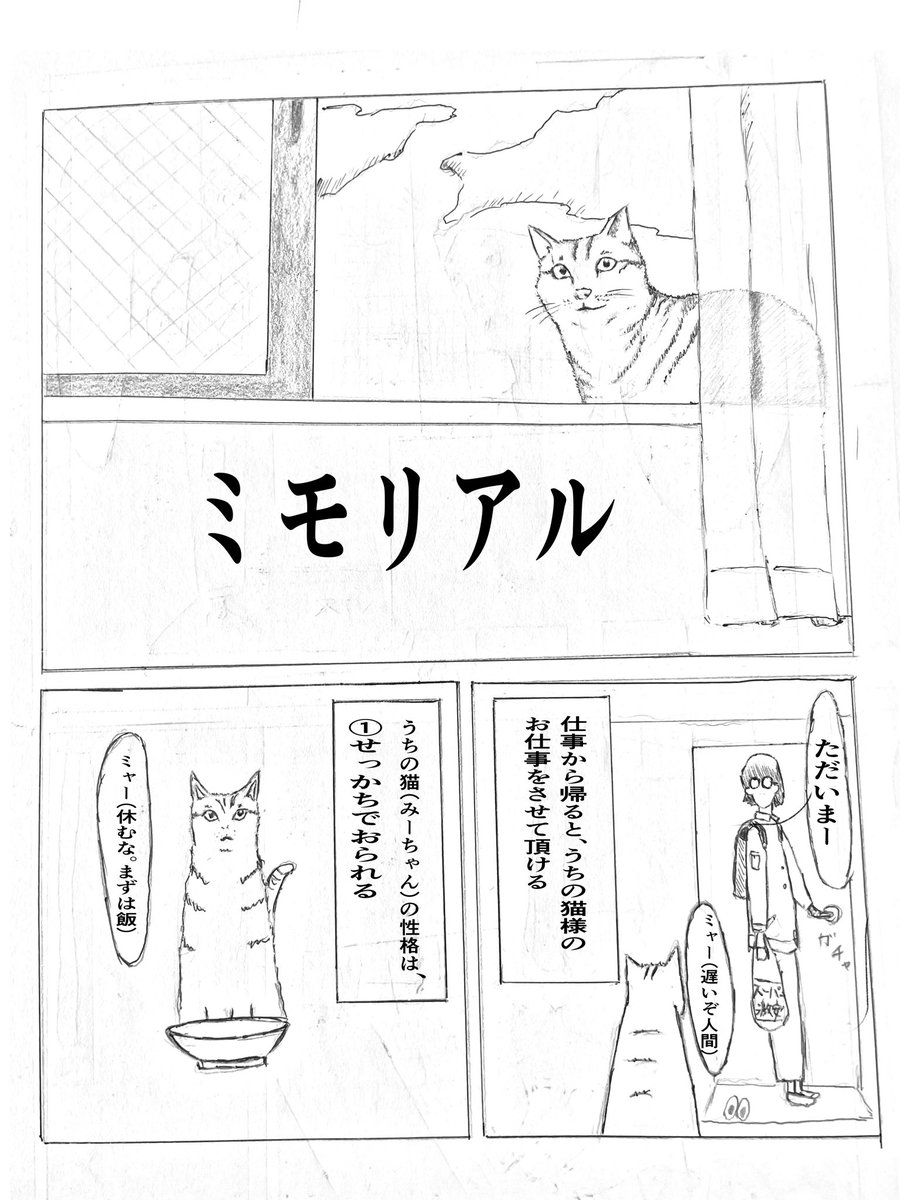 ミモリアル
ただいまー
ガチャ
スーパー
激安
仕事から帰ると、うちの猫様の
お仕事をさせて頂ける
ミャー(遅いぞ人間)
うちの猫(みーちゃん)の性格は、
①せっかちでおられる
ミャー(休むな。まずは飯)